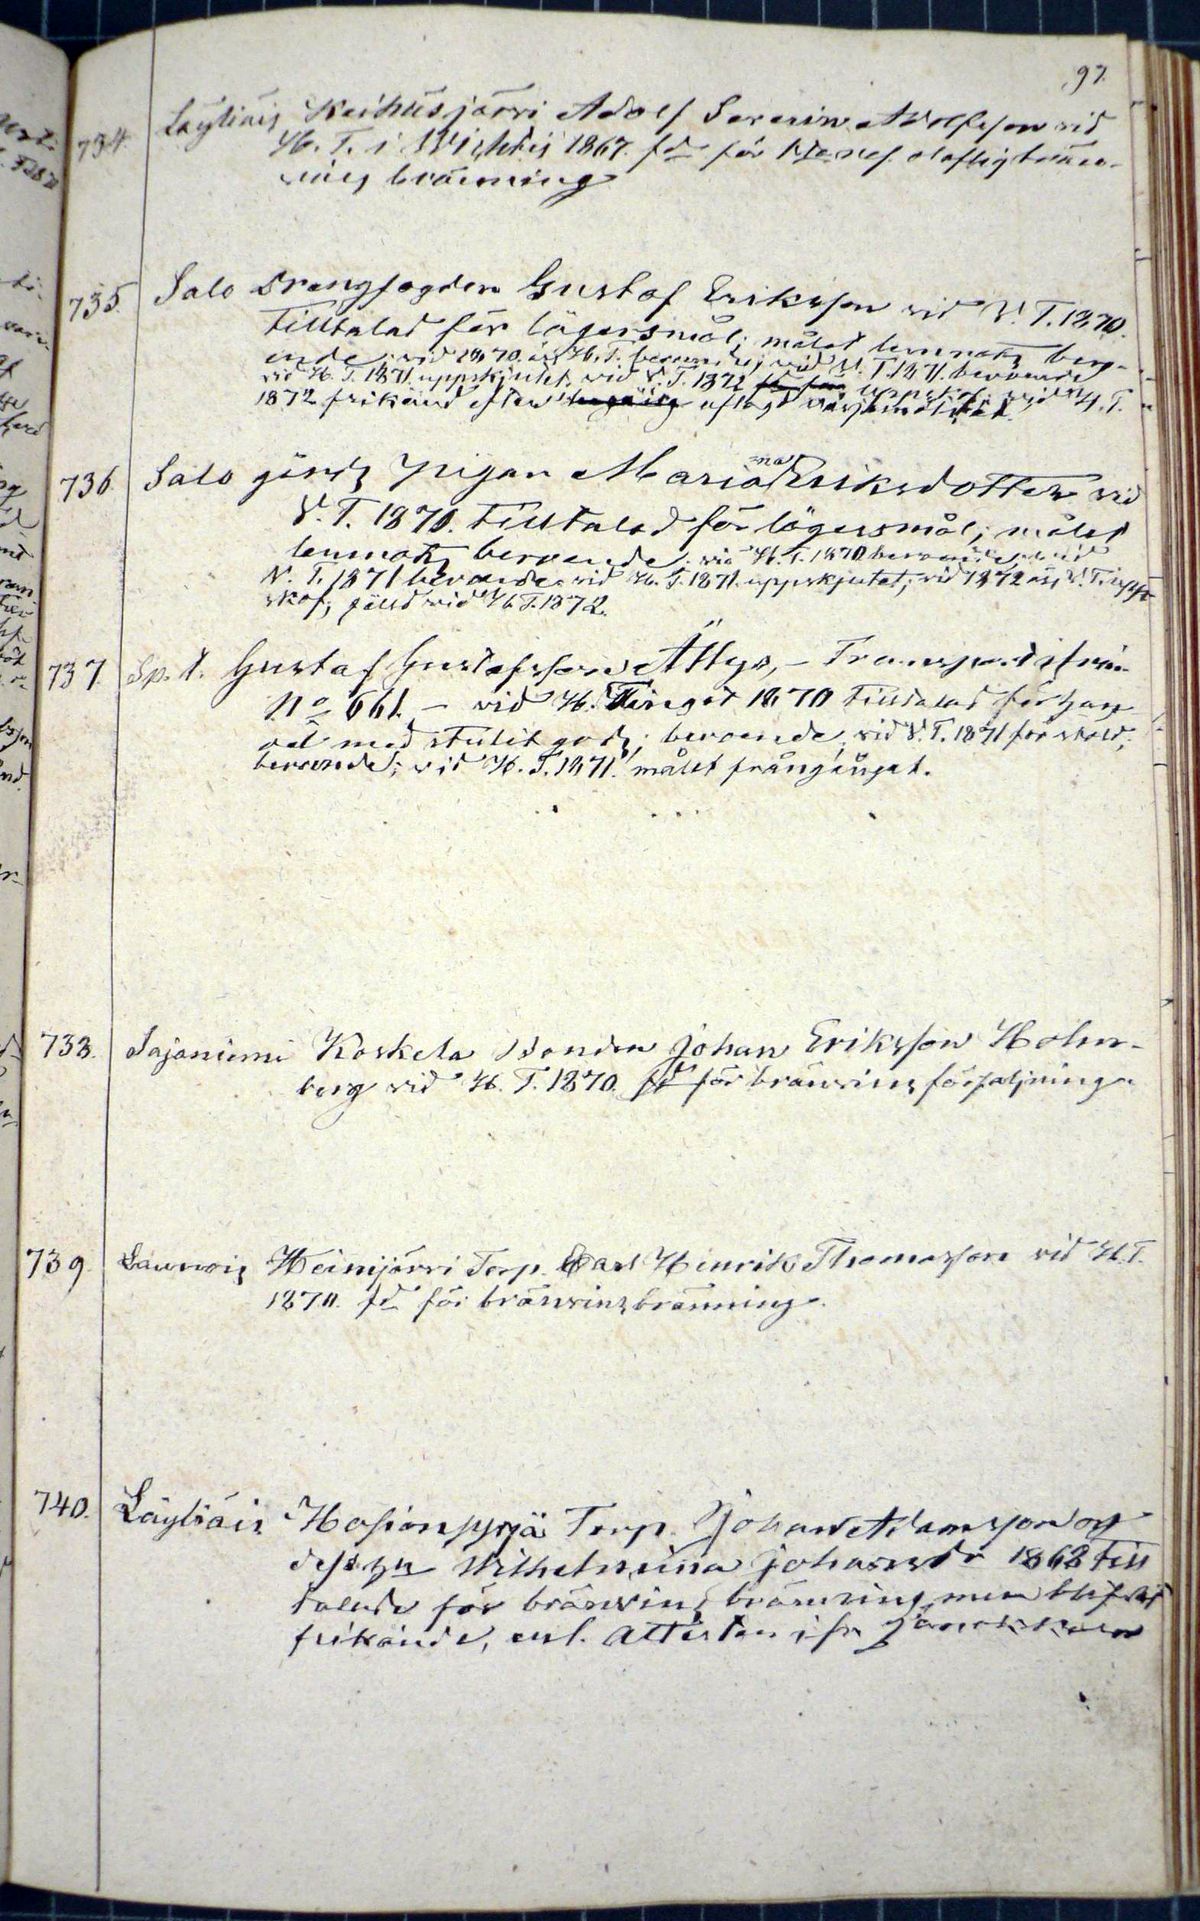 97.
734. Läyliäis Keihäsjärvi Adolf Severin Adolfsson vid
H. T. i Wichtis 1867. fd för 1sta res. olaflig bränn-
vins bränning
735. Salo Drengfogden Gustaf Eriksson vid V. T. 1870.
tilltalad för lägersmål; målet lemnats bero-
ende; vid 1870 års H. T. beroende; vid V. T. 1871. beroende
vid H. T. 1871. uppskjutet, vid V. T. 1872 uppskof; vid H. T.
1872 frikänd efter aflagd värjemålsed.
736. Salo gårds pigan Maria Eriksdotter vid
V. T. 1870. tilltalad för lägersmål; målet
lemnats beroende. vid H. T. 1870 beroende; vid
V. T. 1871 beroende vid H. T. 1871. uppskjutet; vid 1872 års V. T. upp-
skof, fälld vid H. T. 1872.
737. Sp. t. Gustaf Gustafsson Ållgo, – Transport ifrån
No 661. – vid H. Tinget 1870 tilltalad för han
del med stulit gods; beroende, vid V. T. 1871 för stöld;
beroende; vid H. T. 1871. målet frångånget.
738. Sajaniemi Koskela Bonden Johan Eriksson Holm-
berg vid H. T. 1870. fd för bränvins försäljning.
739. Launois Heinijärvi Torp. Carl Henrik Thomasson vid H. T.
1870. fd för bränvinsbränning.
740. Läyliäis Hosionpyöjä Torp. Johan Adamsson og
dess hu Wilhelmina Johansdr 1868 till
talade för bränvins bränning men blefvo
frikände, enl. attesten ifr Janakkala